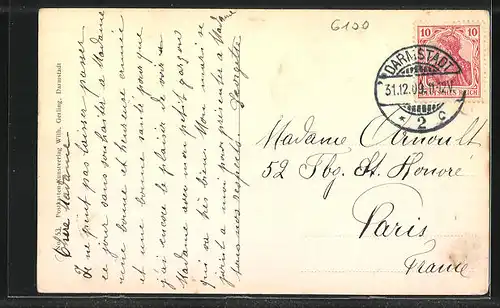 6100
10
10
DEUTSCHES REICH
DARMSTADT
31.12.09. 11-12V
* 2 c
Madame Arnoult
52 Fbg. St. Honoré
Paris
France
Postkarten-Kunstverlag Wilh. Gerling, Darmstadt
Chère Madame
Je ne peut pas laisser passer
ce jour sans souhaiter a Madame
une bonne et heureuse année
et une bonne santé pour que
j'ai encore le plaisir de voir
Madame avec mon petit garçon
qui va très bien. Mon mari se
joint a moi pour présenter a Madame
tous nos respects
Georgette